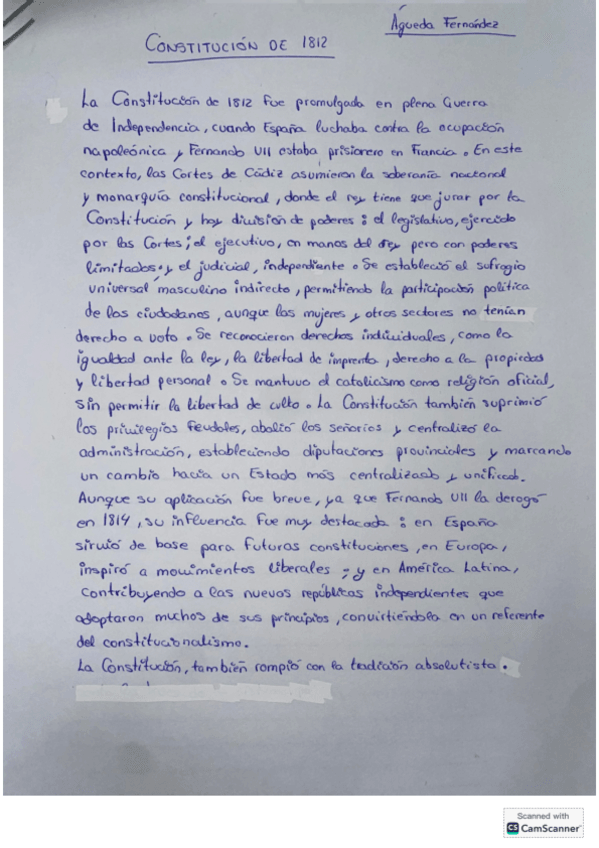 Águeda Fernández
CONSTITUCIÓN DE 1812
La Constitución de 1812 fue promulgada en plena Guerra
de Independencia, cuando España luchaba contra la ocupación
napoleónica y Fernando VII estaba prisionero en Francia. En este
contexto, las Cortes de Cádiz asumieron la soberanía nacional
y monarquía constitucional, donde el rey tiene que jurar por la
Constitución y hay división de poderes: el legislativo, ejercido
por las Cortes; el ejecutivo, en manos del rey pero con poderes
limitados. y el judicial, independiente. Se estableció el sufragio
universal masculino indirecto, permitiendo la participación política
de los ciudadanos, aunque las mujeres y otros sectores no tenían
derecho a voto. Se reconocieron derechos individuales, como la
igualdad ante la ley, la libertad de imprenta, derecho a la propiedad
y libertad personal. Se mantuvo el catolicismo como religión oficial,
sin permitir la libertad de culto. La Constitución también suprimió
los privilegios feudales, abolió los señoríos y centralizó la
administración, estableciendo diputaciones provinciales y marcando
un cambio hacia un Estado más centralizado y unificado.
Aunque su aplicación fue breve, ya que Fernando VII la derogó
en 1814, su influencia fue muy destacada: en España
sirvió de base para futuras constituciones, en Europa,
inspiró a movimientos liberales; y en América Latina,
contribuyendo a las nuevas repúblicas independientes que
adoptaron muchos de sus principios, convirtiéndola en un referente
del constitucionalismo.
La Constitución, también rompió con la tradición absolutista.
Scanned with
CS CamScanner